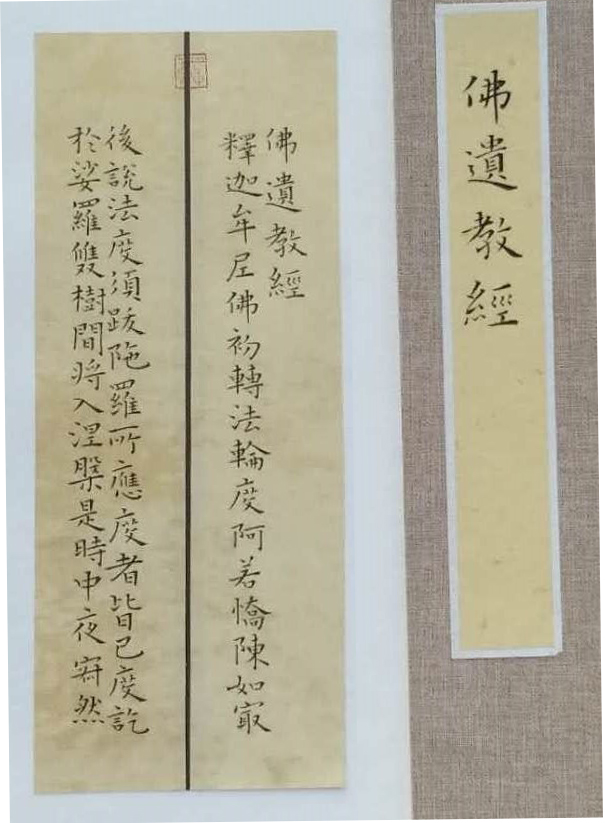 佛遺教經
佛遺教經
釋迦牟尼佛初轉法輪度阿若憍陳如寂
後說法度須跋陁羅所應度者皆已度訖
於娑羅雙樹間將入涅槃是時中夜寂然